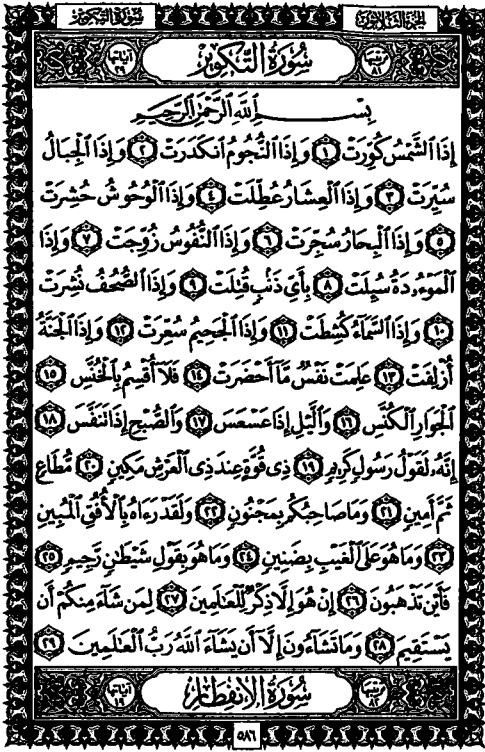 سُورَةُ التَّكْوِيرِ الجُزءُ الثَّلَاثُونَ
ترتيبها ٨١ سُورَةُ التَّكْوِيرِ آياتها ٢٩
بِسْمِ اللَّهِ الرَّحْمَٰنِ الرَّحِيمِ
إِذَا الشَّمْسُ كُوِّرَتْ ١ وَإِذَا النُّجُومُ انكَدَرَتْ ٢ وَإِذَا الْجِبَالُ
سُيِّرَتْ ٣ وَإِذَا الْعِشَارُ عُطِّلَتْ ٤ وَإِذَا الْوُحُوشُ حُشِرَتْ
٥ وَإِذَا الْبِحَارُ سُجِّرَتْ ٦ وَإِذَا النُّفُوسُ زُوِّجَتْ ٧ وَإِذَا
الْمَوْءُۥدَةُ سُئِلَتْ ٨ بِأَىِّ ذَنۢبٍ قُتِلَتْ ٩ وَإِذَا الصُّحُفُ نُشِرَتْ
١٠ وَإِذَا السَّمَآءُ كُشِطَتْ ١١ وَإِذَا الْجَحِيمُ سُعِّرَتْ ١٢ وَإِذَا الْجَنَّةُ
أُزْلِفَتْ ١٣ عَلِمَتْ نَفْسٌ مَّآ أَحْضَرَتْ ١٤ فَلَآ أُقْسِمُ بِالْخُنَّسِ ١٥
الْجَوَارِ الْكُنَّسِ ١٦ وَالَّيْلِ إِذَا عَسْعَسَ ١٧ وَالصُّبْحِ إِذَا تَنَفَّسَ ١٨
إِنَّهُۥ لَقَوْلُ رَسُولٍ كَرِيمٍ ١٩ ذِى قُوَّةٍ عِندَ ذِى الْعَرْشِ مَكِينٍ ٢٠ مُّطَاعٍ
ثَمَّ أَمِينٍ ٢١ وَمَا صَاحِبُكُم بِمَجْنُونٍ ٢٢ وَلَقَدْ رَءَاهُ بِالْأُفُقِ الْمُبِينِ
٢٣ وَمَا هُوَ عَلَى الْغَيْبِ بِضَنِينٍ ٢٤ وَمَا هُوَ بِقَوْلِ شَيْطَٰنٍ رَّجِيمٍ ٢٥
فَأَيْنَ تَذْهَبُونَ ٢٦ إِنْ هُوَ إِلَّا ذِكْرٌ لِّلْعَٰلَمِينَ ٢٧ لِمَن شَآءَ مِنكُمْ أَن
يَسْتَقِيمَ ٢٨ وَمَا تَشَآءُونَ إِلَّآ أَن يَشَآءَ اللَّهُ رَبُّ الْعَٰلَمِينَ ٢٩
ترتيبها ٨٢ سُورَةُ الِانفِطَارِ آياتها ١٩
٥٨٦